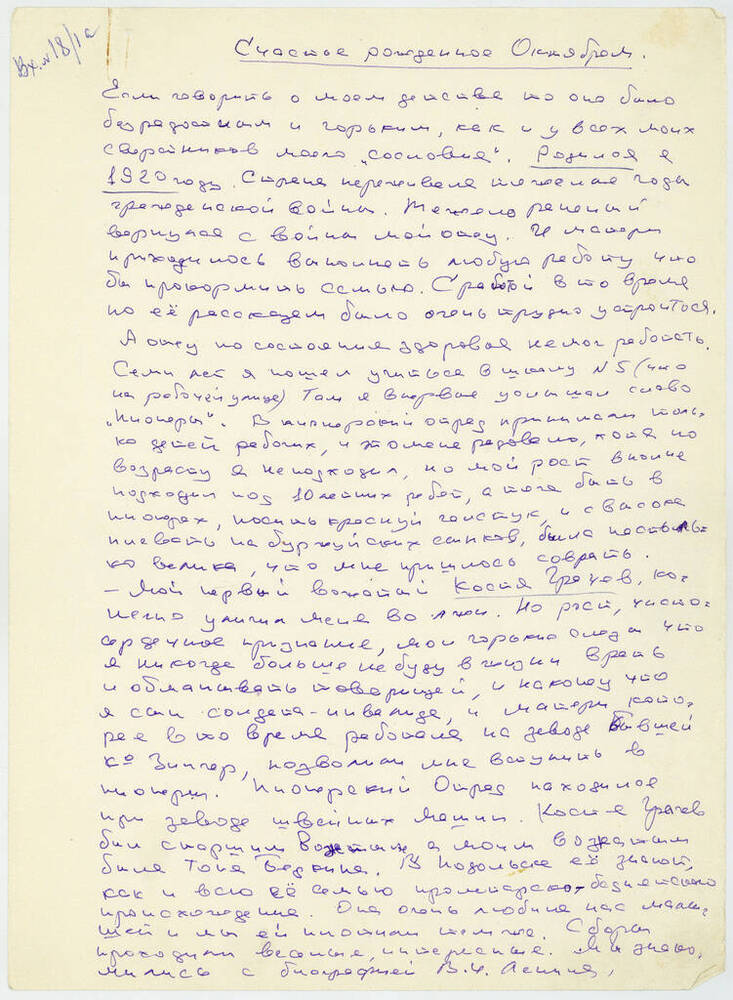 Вх. № 18/1а
Счастье рожденное Октябрем.
Если говорить о моем детстве то оно было
безрадостным и горьким, как и у всех моих
сверстников моего „сословия". Родился я
1920 году. Страна переживала тяжелые годы
гражданской войны. Тяжело раненый
вернулся с войны мой отец. И матери
приходилось выполнять любую работу что
бы прокормить семью. С работой в то время
по её рассказам было очень трудно устроиться.
А отец по состояния здоровья немог работать.
Семи лет я пошел учиться в школу N 5 (что
на рабочей улице) Там я впервые услышал слово
„Пионеры". В пионерский отряд принимали толь-
ко детей рабочих, и это меня радовало, хотя по
возрасту я неподходил, но мой рост вполне
подходил под 10 летних ребят, а тяга быть в
пионерах, носить красный галстук, и с высока
плевать на буржуйских сынков, была настоль-
ко велика, что мне пришлось соврать.
– Мой первый вожатый Костя Грачев, ко-
нечно уличил меня во лжи. Но рост, чисто-
сердечное признание, мои горькие слезы что
я никогда больше не буду в жизни врать
и обманывать товарищей, и наконец что
я сын солдата-инвалида, и матери кото-
рая в то время работала на заводе бывшей
Ко Зингер, позволили мне вступить в
пионеры. Пионерский Отряд находился
при заводе швейных машин. Костя Грачев
был старшим вожатым а моим вожатым
была Тоня Бедкина. В Подольске её знают,
как и всю её семью пролетарско-бедняцкого
происхождения. Она очень любила нас малы-
шей и мы ей платили тем же. Сборы
проходили веселые, интересные. Мы знако-
мились с биографией В.И. Ленина,